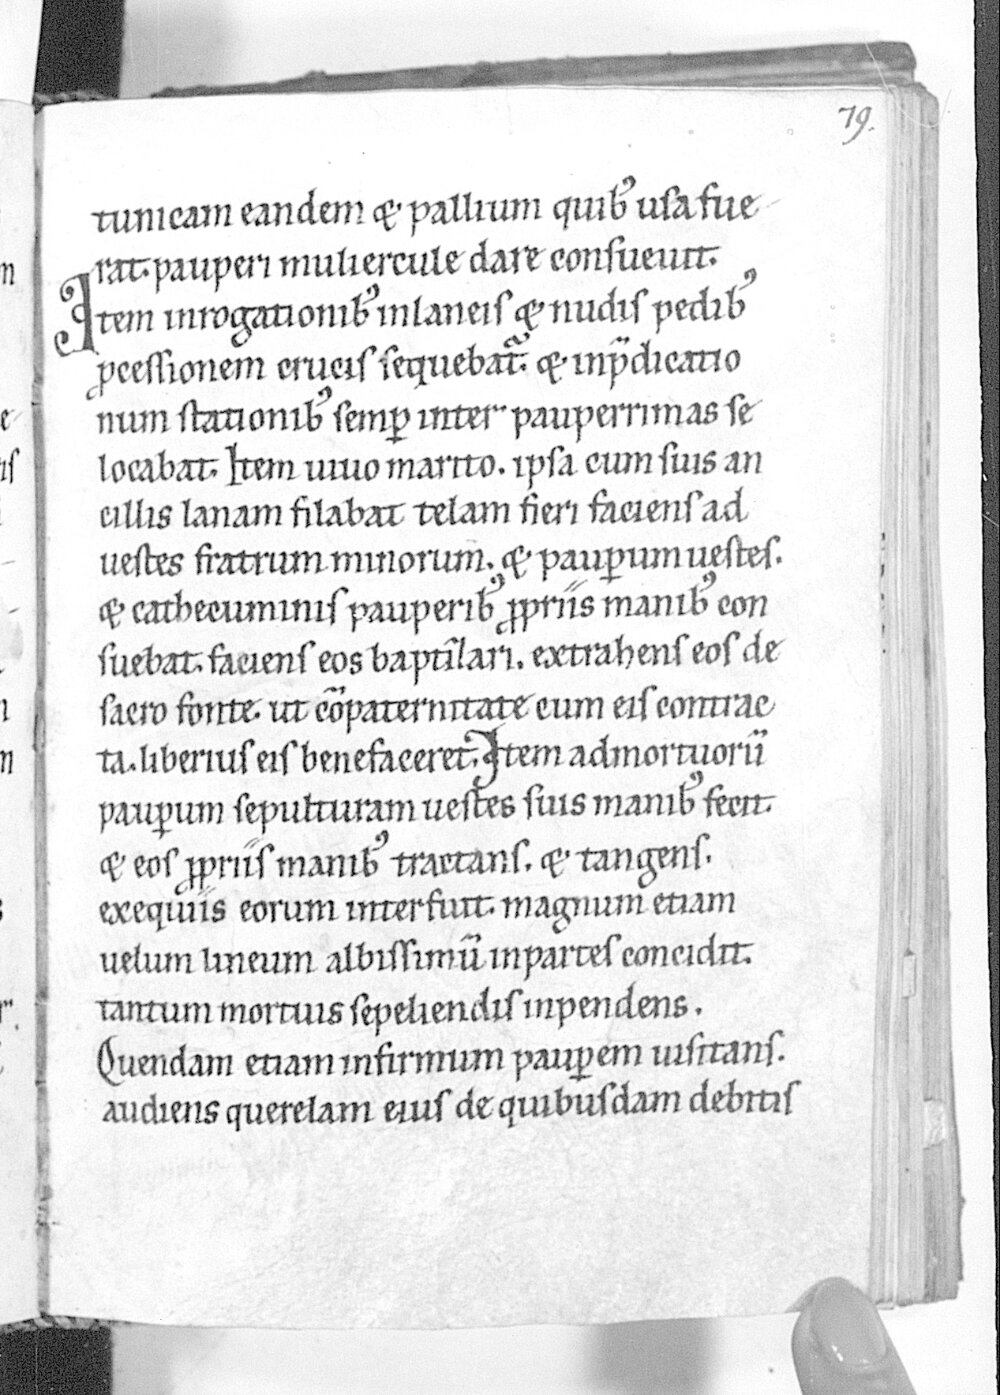 79.
tunicam eandem & pallium quibꝰ usa fue
rat. pauperi muliercule dare consueuit.
Item inrogationibꝰ inlaneis & nudis pedibꝰ
ꝓcessionem crucis sequebat᷑. & inp̄dicatio
num stationibꝰ semꝑ inter pauperrimas se
locabat. Item uiuo marito. ipsa cum suis an
cillis lanam filabat telam fieri faciens ad
uestes fratrum minorum. & pauꝑum uestes.
& cathecuminis pauperibꝰ ꝓpriis manibꝰ con
suebat. faciens eos baptiẜari. extrahens eos de
sacro fonte. ut cōpaternitate cum eis contrac
ta. liberius eis benefaceret. Item admortuorū
pauꝑum sepulturam uestes suis manibꝰ fecit.
& eos ꝓpriis manibꝰ tractans. & tangens.
exequiis eorum interfuit. magnum etiam
uelum lineum albissimū inpartes concidit.
tantum mortuis sepeliendis inpendens.
Quendam etiam infirmum pauꝑem uisitans.
audiens querelam eius de quibusdam debitis